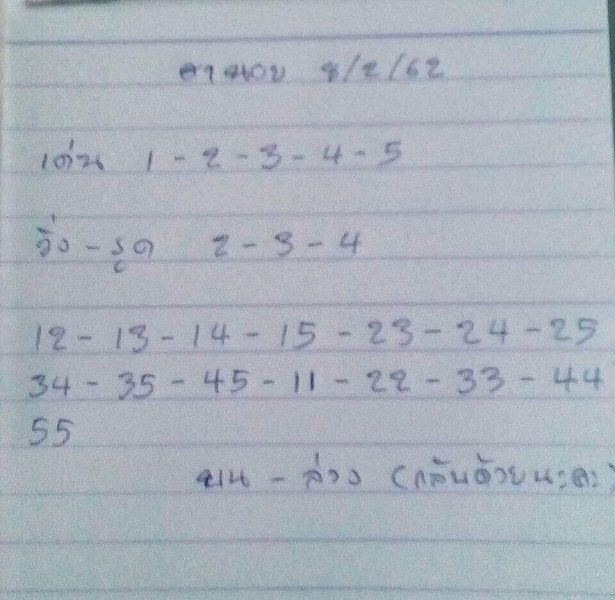 ฮานอย 8/2/62
เด่น 1 - 2 - 3 - 4 - 5
วิ่ง - รูด 2 - 3 - 4
12 - 13 - 14 - 15 - 23 - 24 - 25
34 - 35 - 45 - 11 - 22 - 33 - 44
55
บน - ล่าง (กลับด้วยนะคะ)